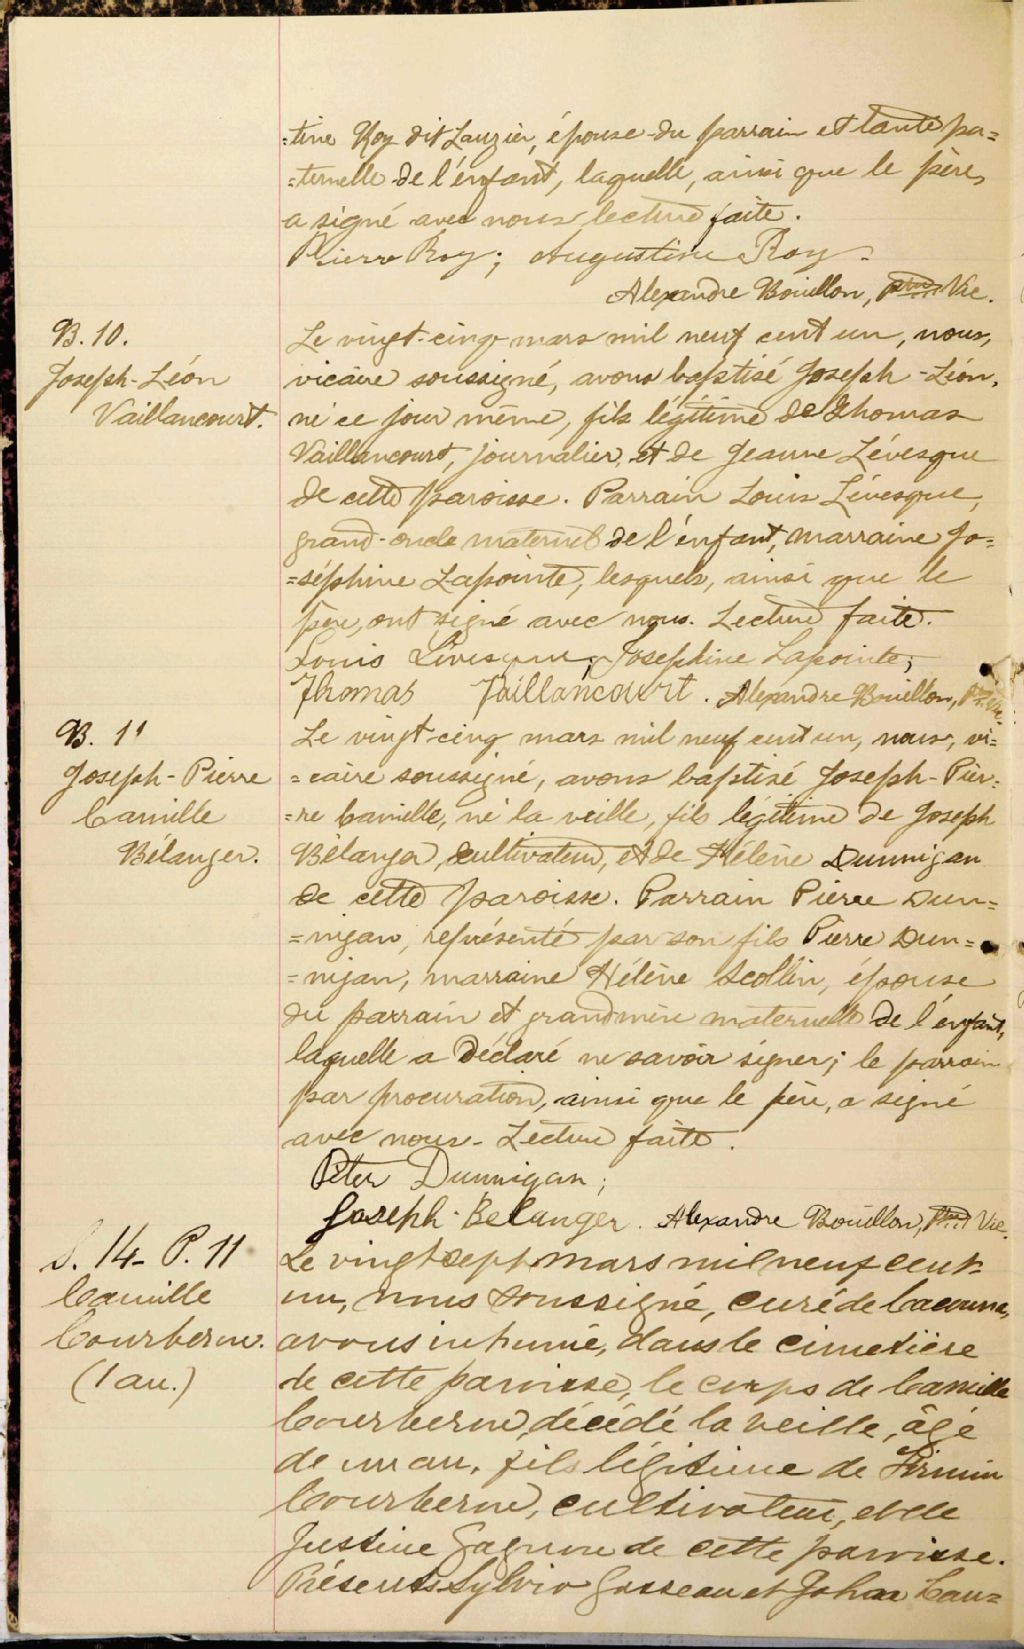 =tine Roy dit Lauzier, épouse du parrain et tante pa=
=ternelle de l'enfant, laquelle, ainsi que le père,
a signé avec nous lecture faite.
Pierre Roy; Augustine Roy.
Alexandre Bouillon, ptre Vic.
B. 10.
Joseph-Léon
Vaillancourt.
Le vingt-cinq mars mil neuf cent un, nous,
vicaire soussigné, avons baptisé Joseph-Léon,
né ce jour même, fils légitime de Thomas
Vaillancourt, journalier, et de Jeanne Lévesque
de cette paroisse. Parrain Louis Lévesque,
grand-oncle maternel de l'enfant, marraine Jo=
=séphine Lapointe, lesquels, ainsi que le
père, ont signé avec nous. Lecture faite.
Louis Livesque; Josephine Lapointe;
Thomas Vaillancourt. Alexandre Bouillon, Ptre Vic.
B. 11
Joseph-Pierre
Camille
Bélanger.
Le vingt-cinq mars mil neuf cent un, nous, vi=
=caire soussigné, avons baptisé Joseph-Pier=
=re Camille, né la veille, fils légitime de Joseph
Bélanger, cultivateur, et de Hélène Dunnigan
de cette paroisse. Parrain Pierre Dun=
=nigan, représenté par son fils Pierre Dun=
=nigan, marraine Hélène Scollin, épouse
du parrain et grandmère maternelle de l'enfant,
laquelle a déclaré ne savoir signer; le parrain
par procuration, ainsi que le père, a signé
avec nous. Lecture faite.
Peter Dunnigan;
Joseph Belanger. Alexandre Bouillon, Ptre Vic.
S. 14- P. 11
Camille
Courberon.
(1 an.)
Le vingt sept mars mil neuf cent
un, nous soussigné, curé de Cacouna,
avons inhumé, dans le cimetière
de cette paroisse, le corps de Camille
Courberon, décédé la veille, âgé
de un an, fils légitime de Firmin
Courberon, cultivateur, et de
Justine Gagnon de cette paroisse.
Présents Sylvio Gosseau et Johan Cau=